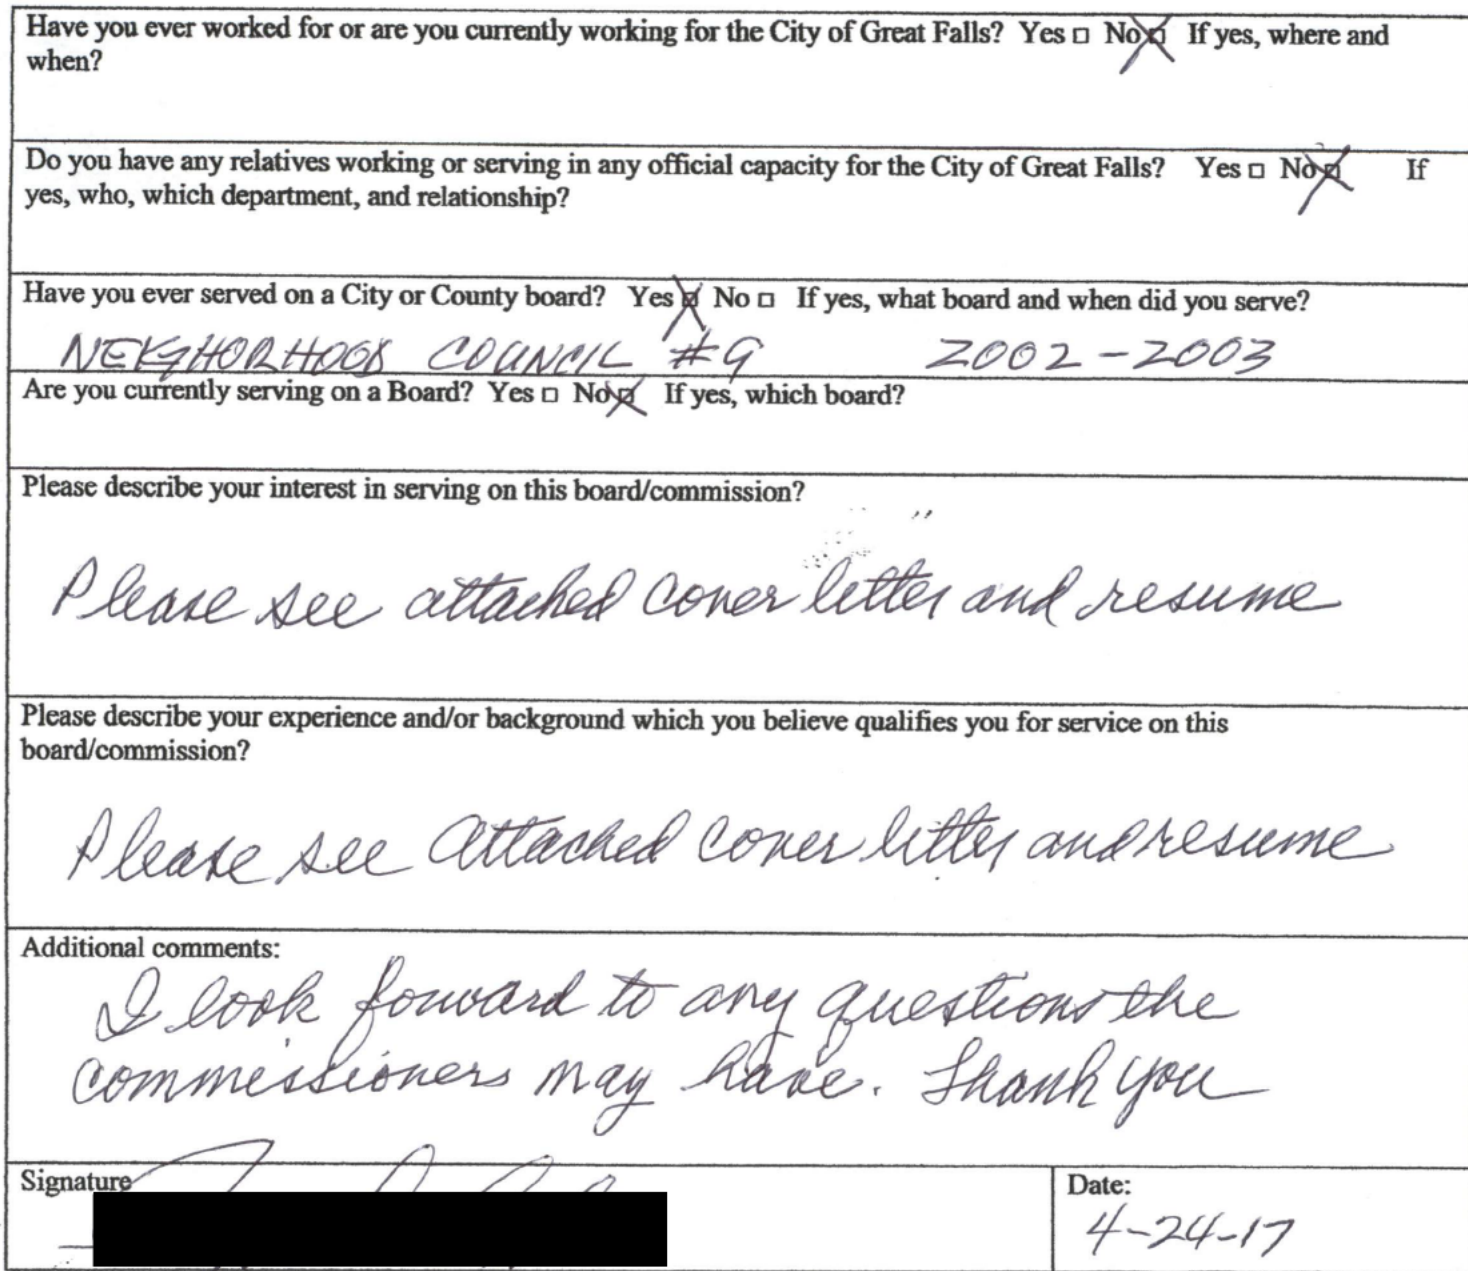 Have you ever worked for or are you currently working for the City of Great Falls? Yes □ No ☒ If yes, where and
when?
Do you have any relatives working or serving in any official capacity for the City of Great Falls? Yes □ No ☒ If
yes, who, which department, and relationship?
Have you ever served on a City or County board? Yes ☒ No □ If yes, what board and when did you serve?
NEIGHORHOOD COUNCIL #9 2002-2003
Are you currently serving on a Board? Yes □ No ☒ If yes, which board?
Please describe your interest in serving on this board/commission?
Please see attached cover letter and resume
Please describe your experience and/or background which you believe qualifies you for service on this
board/commission?
Please see attached cover letter and resume
Additional comments:
I look forward to any questions the
commissioners may have. Thank you
Signature
Date:
4-24-17